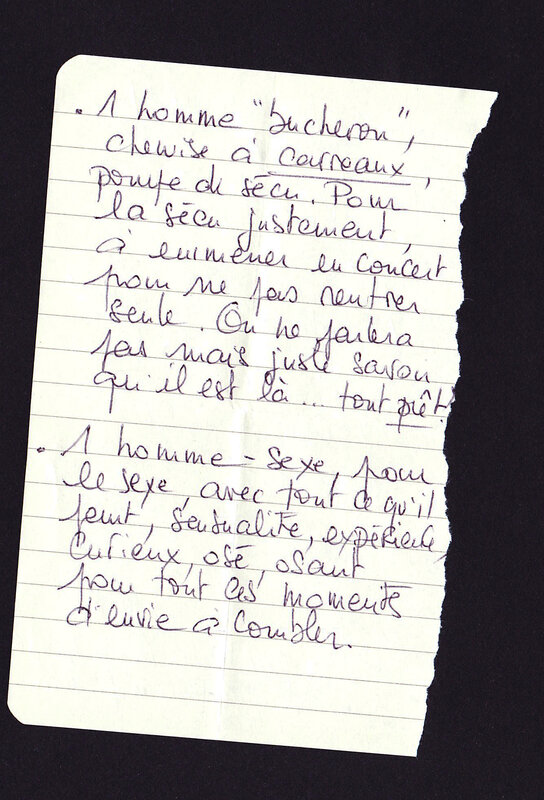 . 1 homme "bucheron",
chemise à carreaux,
pompe de sécu. Pour
la sécu justement,
à emmener en concert
pour ne pas rentrer
seule. On ne parlera
pas mais juste savoir
qu'il est là ... tout prêt!
. 1 homme - sexe, pour
le sexe, avec tout ce qu'il
faut, sensualité, expérience,
curieux, osé, osant
pour tout ces moments
d'envie à combler.